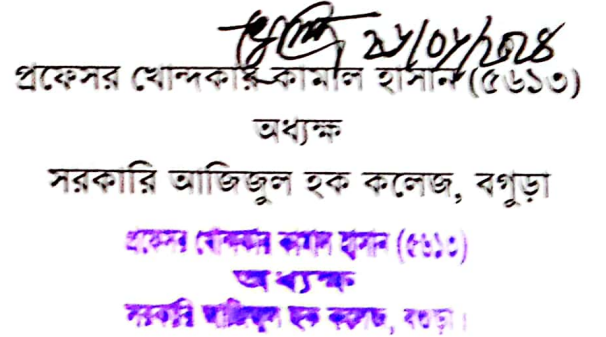 ২৮/০৮/২০২৪
প্রফেসর খোন্দকার কামাল হাসান (৫৬১৩)
অধ্যক্ষ
সরকারি আজিজুল হক কলেজ, বগুড়া
প্রফেসর খোন্দকার কামাল হাসান (৫৬১৩)
অধ্যক্ষ
সরকারি আজিজুল হক কলেজ, বগুড়া।